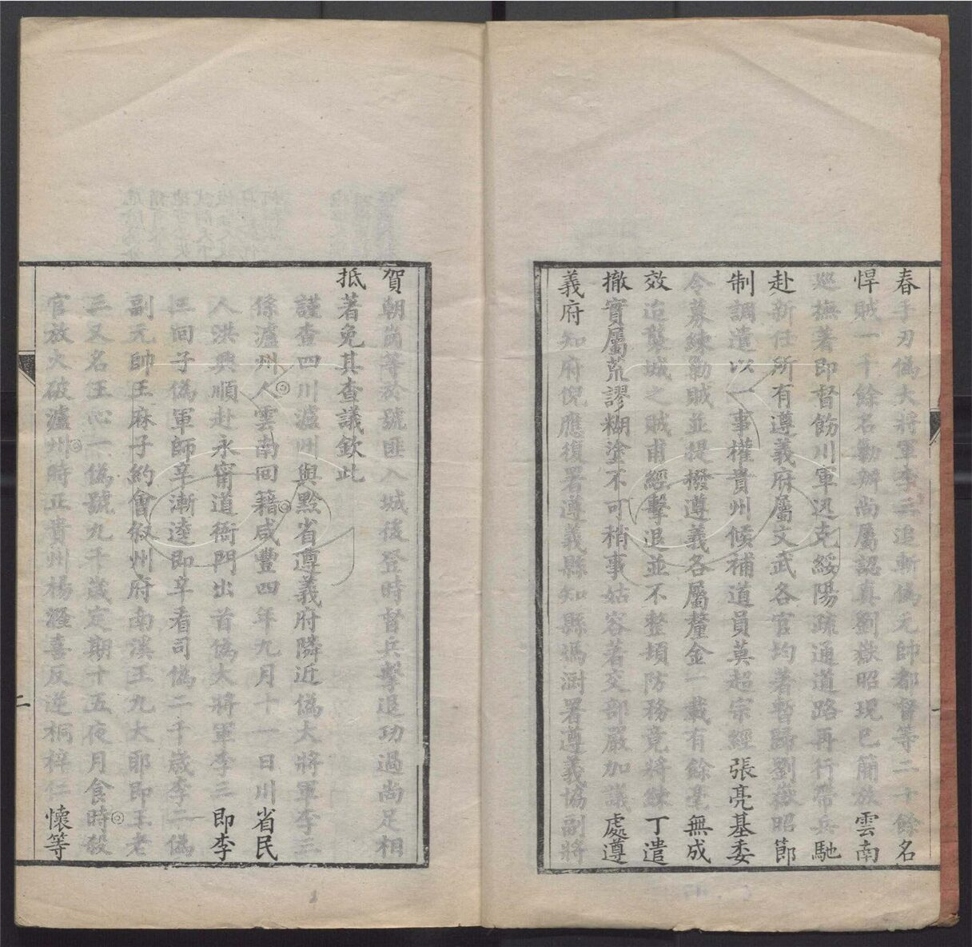 春手刃偽大將軍李三追斬偽元帥都督等二十餘名
悍賊一千餘名勦辦尚屬認真劉嶽昭現已簡放雲南
巡撫著即督飭川軍迅克綏陽疏通道路再行帶兵馳
赴新任所有遵義府屬文武各官均著暫歸劉嶽昭節
制調遣以一事權貴州候補道員莫超宗經張亮基委
令募練勦賊並提撥遵義各屬釐金一載有餘毫無成
效迨襲城之賊甫經擊退並不整頓防務竟將練丁遣
撤實屬荒謬糊塗不可稍事姑容著交部嚴加議處遵
義府知府倪應復署遵義縣知縣馮澍署遵義協副將
賀朝崗等於號匪入城後登時督兵擊退功過尚足相
抵著免其查議欽此
謹查四川瀘州與黔省遵義府隣近偽大將軍李三
係瀘州人雲南回籍咸豐四年九月十一日川省民
人洪興順赴永甯道衙門出首偽大將軍李三即李
三回子偽軍師辛漸逵即辛看司偽二千歲李二偽
副元帥王麻子約會叙州府南溪王九大郎即王老
三又名王心一偽號九千歲定期十五夜月食時殺
官放火破瀘州時正貴州楊漋喜反逆桐梓仁懷等
二